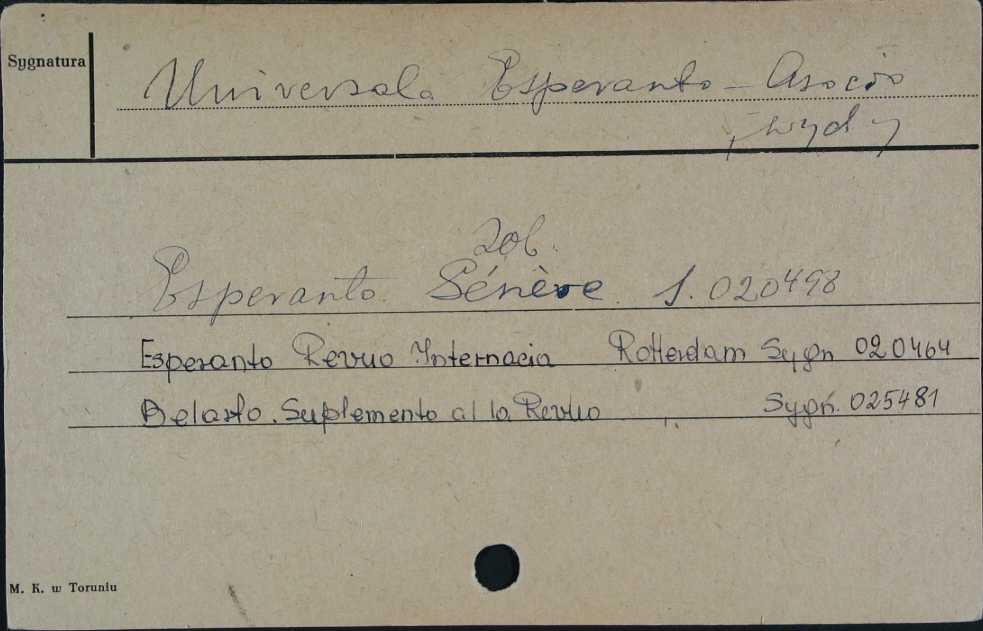 Sygnatura
Universala Esperanto-Asocio
/wyd/
Zob.
Esperanto. Génève. S. 020498
Esperanto Revuo Internacia Rotterdam Sygn 020464
Belarto. Suplemento al la Revuo Sygn. 025481
M. K. w Toruniu